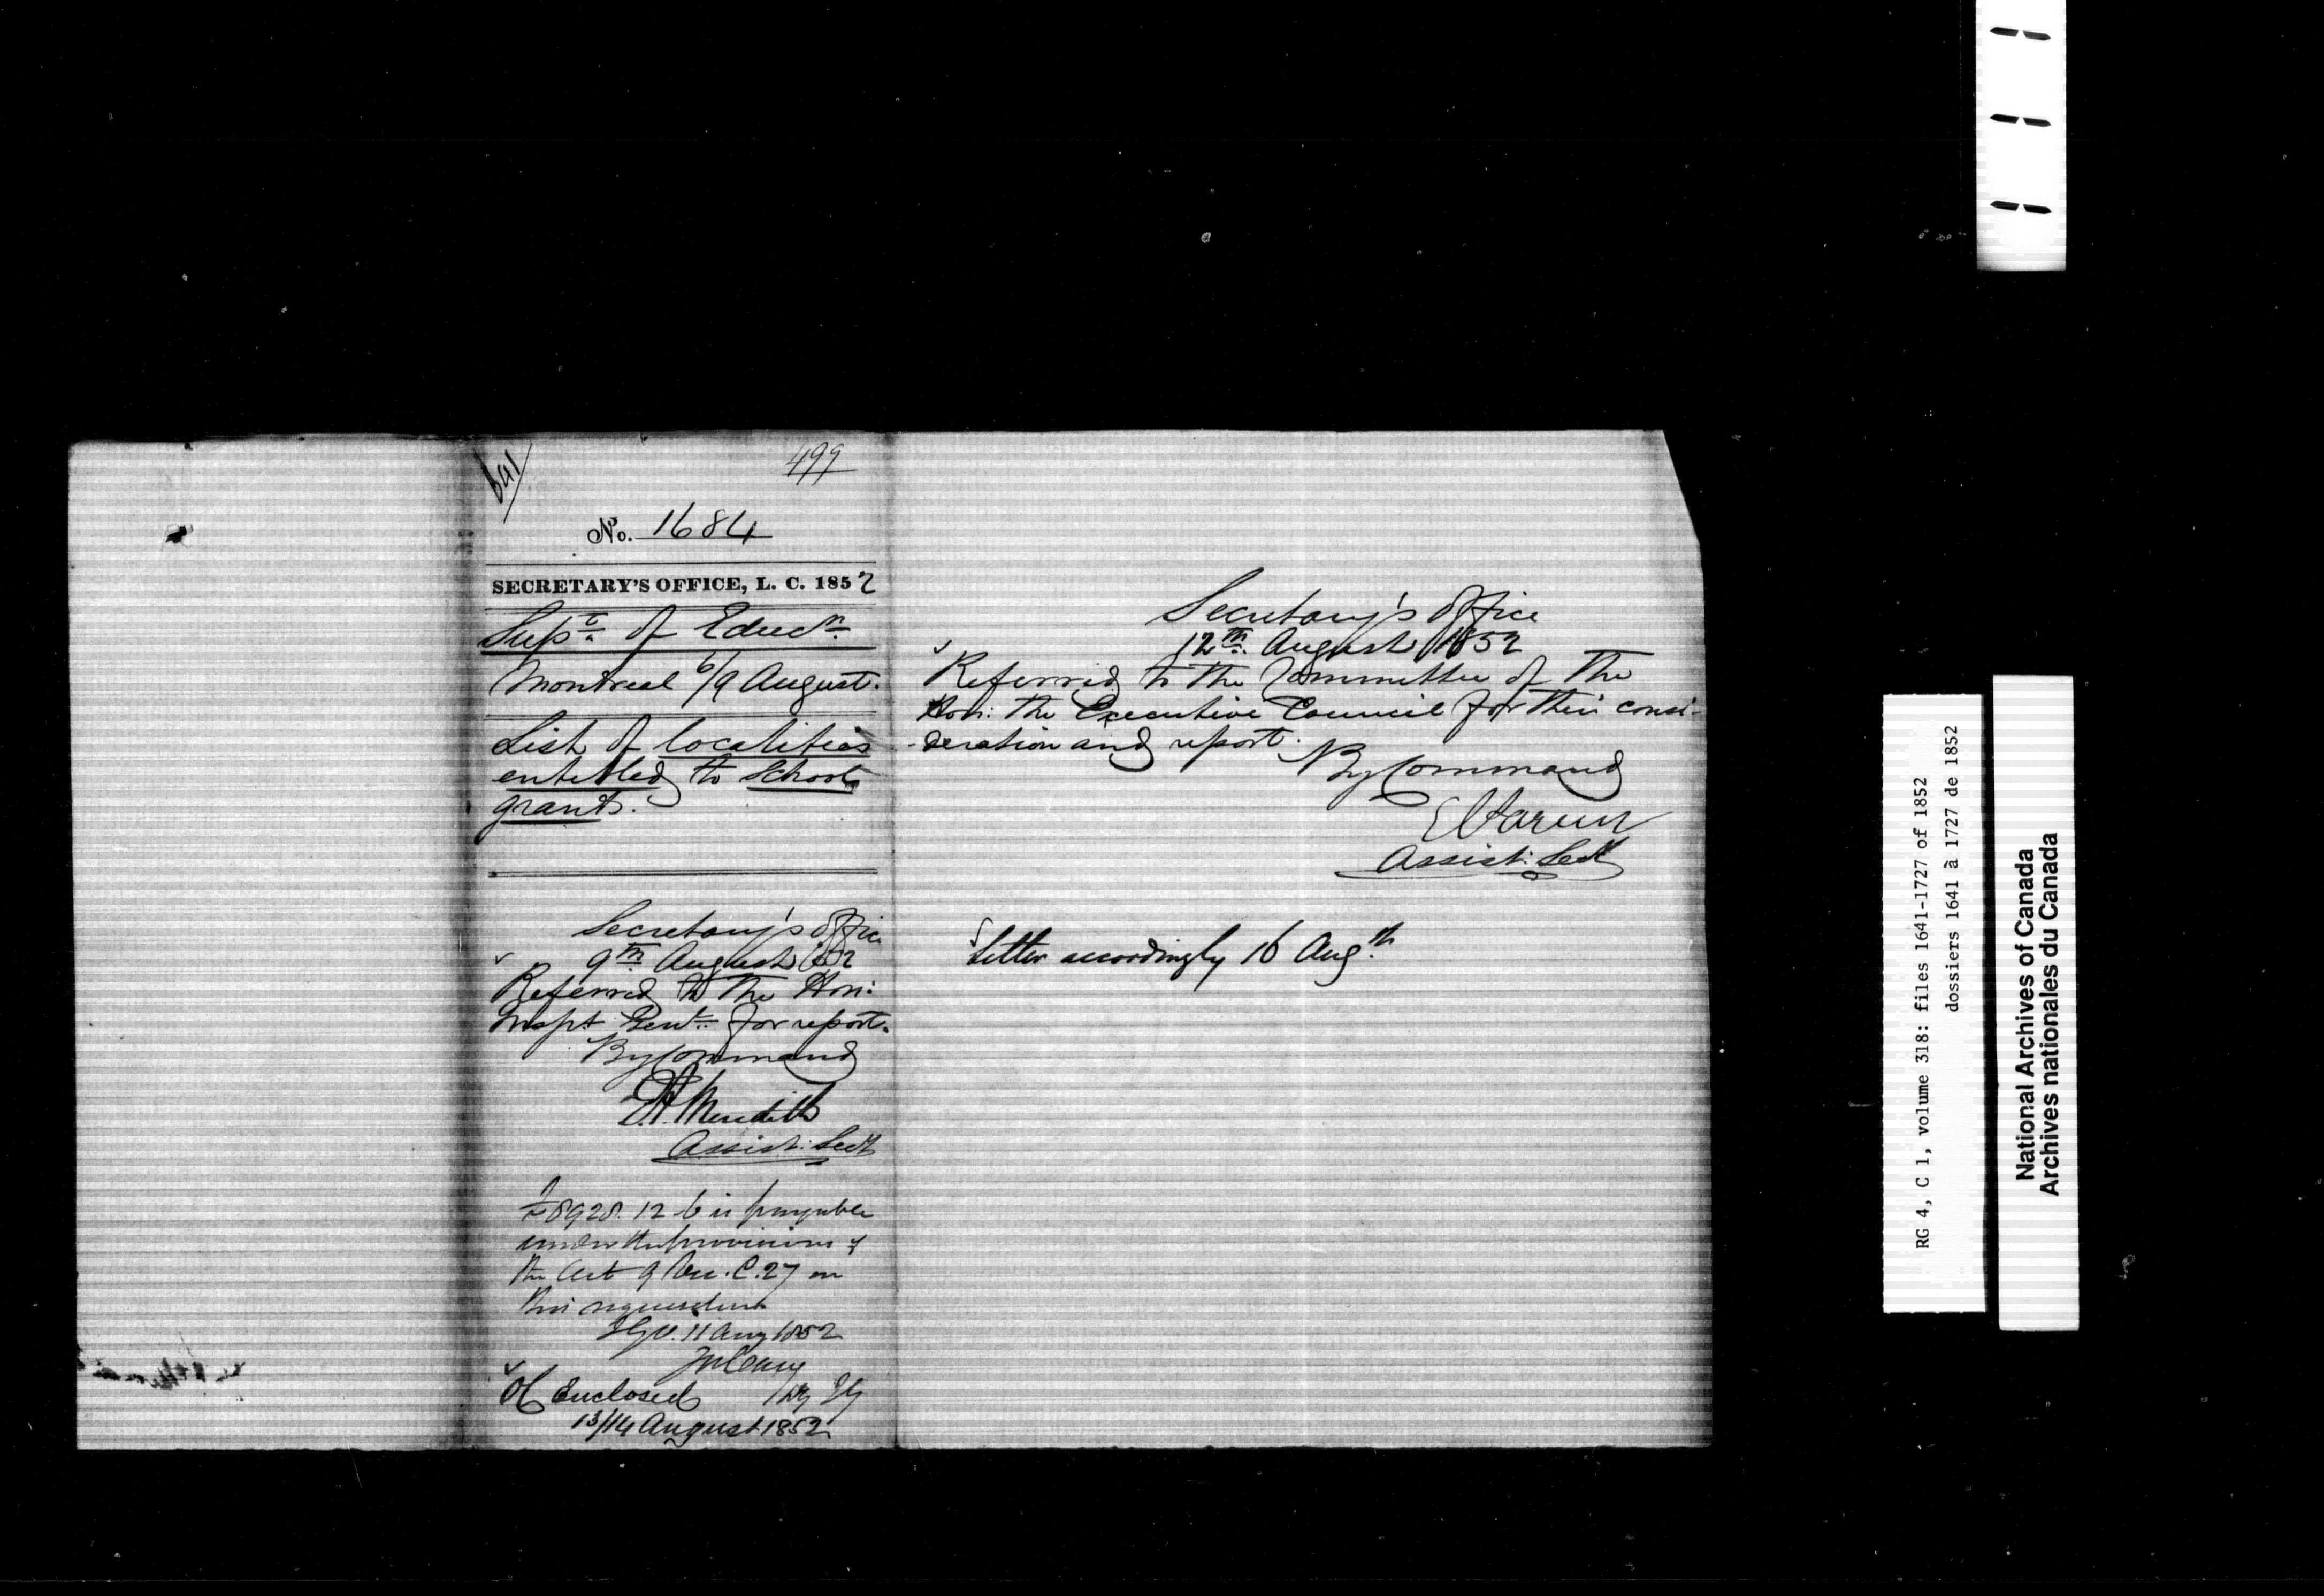 641
499
No. 1684
SECRETARY'S OFFICE, L. C. 1852
Supt. of Educn.
Montreal 6/9 August.
List of localities
entitled to School
grants.
Secretary's Office
9th August 1852
Referred to the Hon:
Inspr Genl. for report.
By Command
E.A. Meredith
Assist: Secy
£8928. 12. 6 is payable
under the provisions of
the Act 9 Vic. C. 27 on
this requisition
I.G.O. 11 Aug 1852
OC Enclosed
Dy IG
13/14 August 1852
Secretary's Office
12th August 1852
Referred to the Committee of the
Hon: the Executive Council for their consi-
-deration and report.
By Command
E Parent
Assist: Secy
Letter accordingly 16 Augth
RG 4, C 1, volume 318: files 1641-1727 of 1852
dossiers 1641 à 1727 de 1852
National Archives of Canada
Archives nationales du Canada